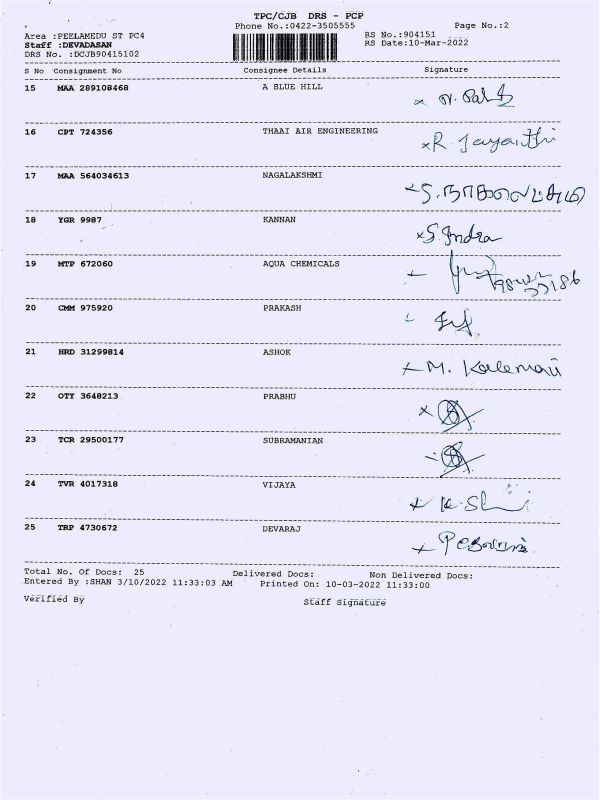 TPC/CJB DRS - PCP
Phone No.:0422-3505555 Page No.:2
Area :PEELAMEDU ST PC4 RS No.:904151
Staff :DEVADASAN RS Date:10-Mar-2022
DRS No. :DCJB90415102
S No Consignment No Consignee Details Signature
15 MAA 289108468 A BLUE HILL
16 CPT 724356 THAAI AIR ENGINEERING R Jayanthi
17 MAA 564034613 NAGALAKSHMI
18 YGR 9987 KANNAN S. Indra
19 MTP 672060 AQUA CHEMICALS
20 CMM 975920 PRAKASH
21 HRD 31299814 ASHOK M.
22 OTY 3648213 PRABHU
23 TCR 29500177 SUBRAMANIAN
24 TVR 4017318 VIJAYA
25 TRP 4730672 DEVARAJ
Total No. Of Docs: 25 Delivered Docs: Non Delivered Docs:
Entered By :SHAN 3/10/2022 11:33:03 AM Printed On: 10-03-2022 11:33:00
Verified By Staff Signature